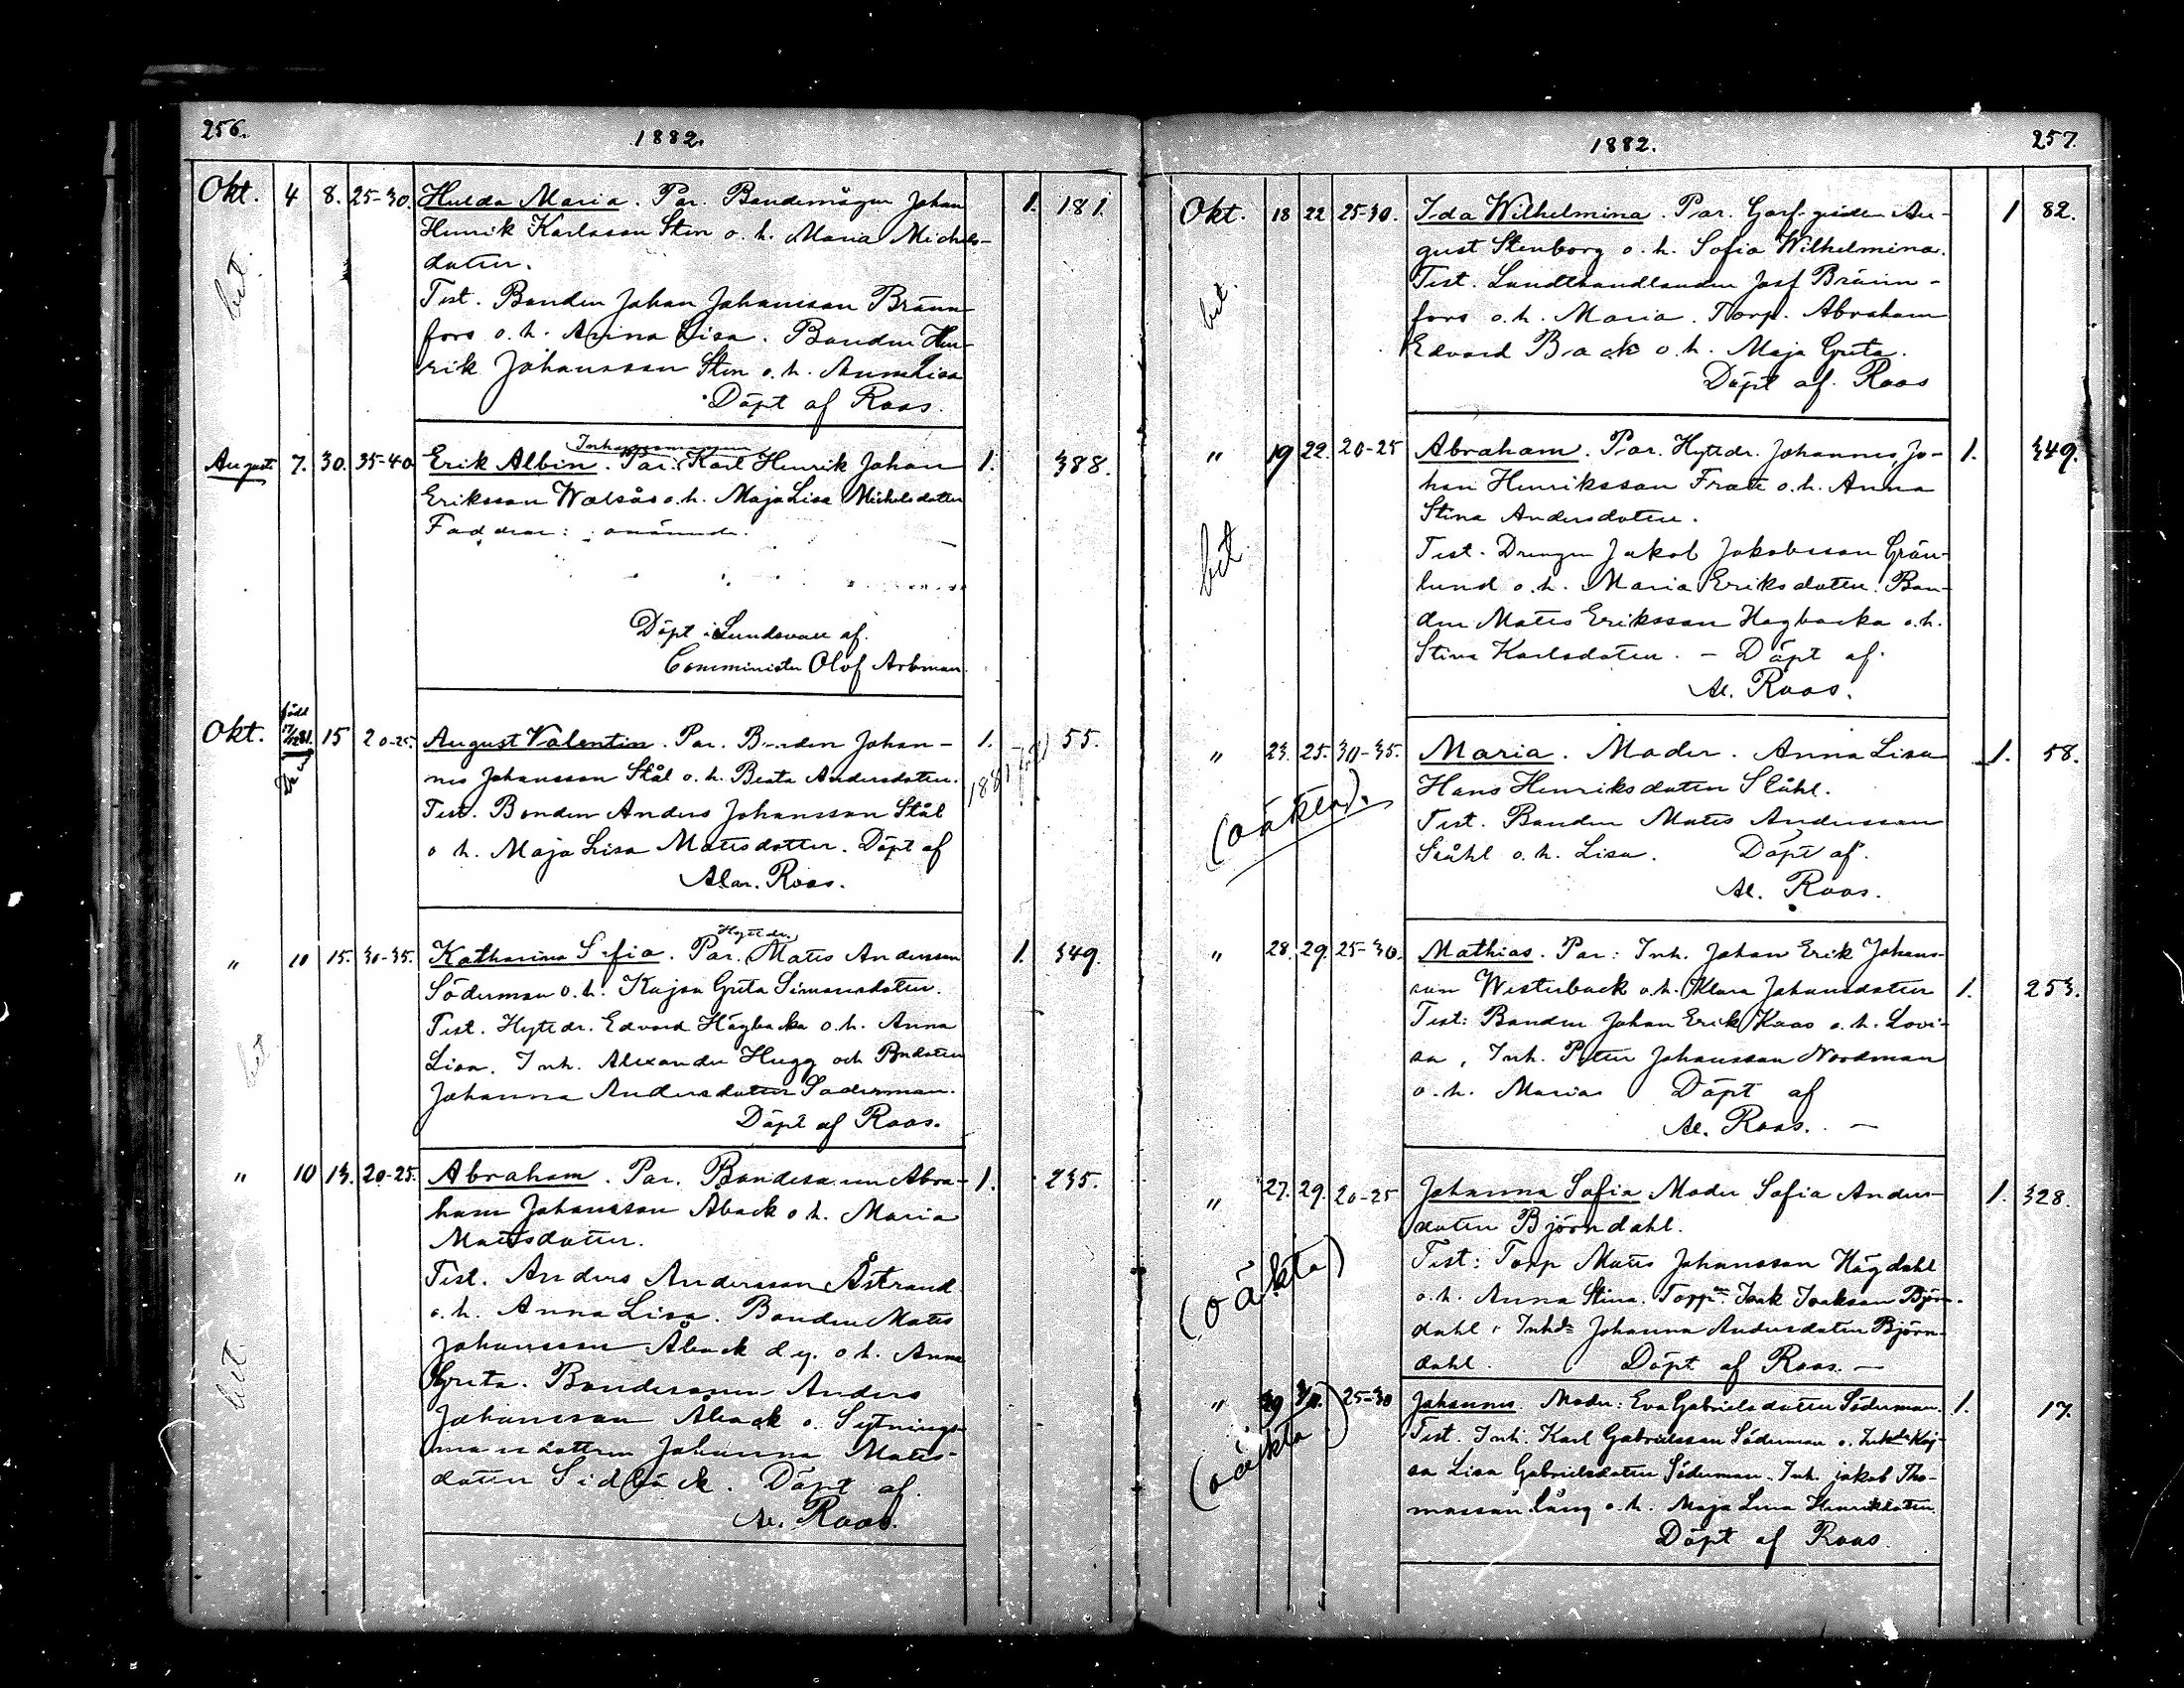 256.
1882.
Okt. 4 8. 25-30. Hulda Maria. Par. Bondemågen Johan 1. 181.
Henrik Karlsson Sten o. h. Maria Michels-
dotter.
bet.
Test. Bonden Johan Johansson Bränn
fors o. h. Anna Lisa. Bonden Hen-
rik Johansson Sten o. h. Anna Lisa
Döpt af Roos.
Inhysesmannen
August 7. 30. 35-40 Erik Albin. Par. Karl Henrik Johan 1. 388.
Eriksson Walsås o. h. Maja Lisa Michelsdotter
Faddrar: onämnde.
Döpt i Sundsvall af
Comminister Olof Arbman.
Okt. född 15 20-25. August Valentin. Par. Bonden Johan- 1. 55.
nes Johansson Stål o. h. Beata Andersdotter. 1881
Test. Bonden Anders Johansson Stål
o h. Maja Lisa Mattsdotter. Döpt af
Alex. Roos.
Hyttdr.
" 10 15. 30-35. Katharina Sofia. Par. Matts Andersson 1. 349.
Söderman o. h. Kajsa Greta Simonsdotter.
Test. Hyttdr. Edvard Högbacka o. h. Anna
bet
Lisa. Inh. Alexander Hugg och Bndotter
Johanna Andersdotter Söderman.
Döpt af Roos.
" 10 13. 20-25. Abraham. Par. Bondesonen Abra- 1. 235.
ham Johansson Åback o h. Maria
Mattsdotter.
Test. Anders Andersson Åstrand
o. h. Anna Lisa. Bonden Matts
bet.
Johansson Åback d. y. o. h. Anna
Greta. Bondesonen Anders
Johansson Åback o. Sytnings-
mansdottren Johanna Matts-
dotter Sidbäck. Döpt af
Al. Roos.
1882.
257.
Okt. 18 22 25-30. Ida Wilhelmina. Par. Garf. Au- 1 82.
gust Stenborg o. h. Sofia Wilhelmina.
bet.
Test. Landthandlanden Josf Bränn-
fors o. h. Maria. Torp. Abraham
Edvard Back o. h. Maja Greta.
Döpt af. Roos
" 19 22. 20-25 Abraham. Par. Hyttdr. Johannes Jo- 1. 349.
han Henriksson Frott o. h. Anna
Stina Andersdotter.
bet.
Test. Drengen Jakob Jakobsson Grön-
lund o. h. Maria Eriksdotter. Bon-
den Matts Eriksson Hagbacka o. h.
Stina Karlsdotter. - Döpt af
Al. Roos.
" 23. 25. 30-35. Maria. Moder. Anna Lisa 1. 58.
Hans Henriksdotter Ståhl.
(oäkta).
Test. Bonden Matts Andersson
Ståhl o. h. Lisa. Döpt af.
Al. Roos.
" 28. 29. 25-30. Mathias. Par: Inh. Johan Erik Johans-
son Westerback o. h. Klara Johansdotter 1. 253.
Test: Bonden Johan Erik Kaas o. h. Lovi-
sa, Inh. Petter Johansson Nordman
o. h. Maria Döpt af
Al. Roos. -
" 27. 29. 20-25 Johanna Sofia Moder Sofia Anders- 1. 328.
dotter Björndahl.
(oäkta)
Test: Torp Matts Johansson Högdahl
o. h. Anna Stina. Torpn Isak Isaksson Björn-
dahl, Inhds Johanna Andersdotter Björn-
dahl. Döpt af Roos. -
" 29 25-30 Johannes. Moder: Eva Gabrielsdotter Söderman. 1. 17.
(oäkta)
Test. Inh. Karl Gabrielsson Söderman o. Inhds Kaj-
sa Lisa Gabrielsdotter Söderman. Inh. Jakob Tho-
massan Lång o. h. Maja Lena Henriksdotter.
Döpt af Roos.